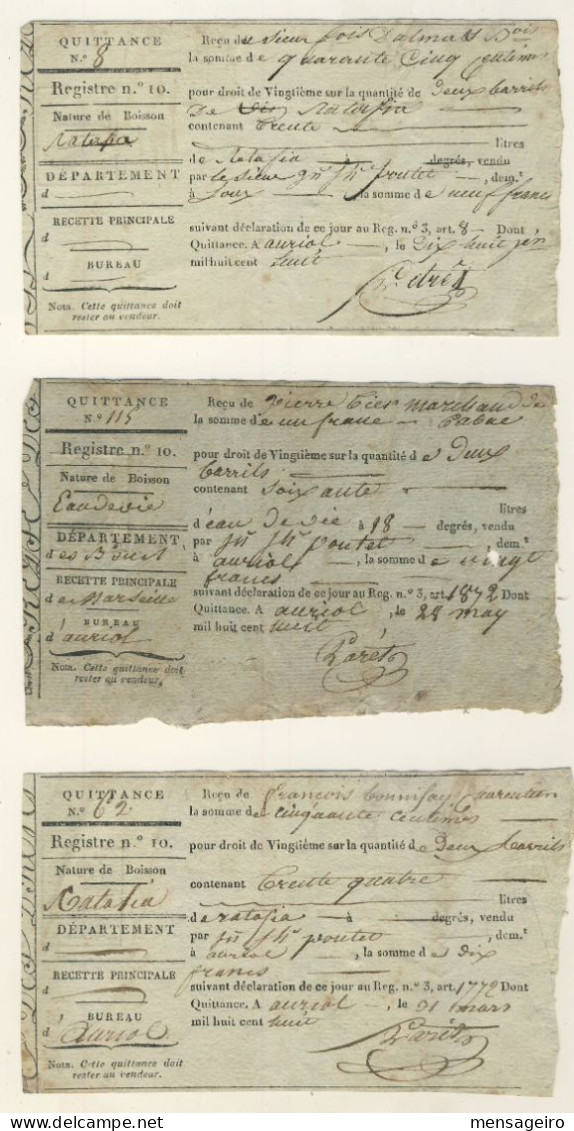 QUITTANCE
N.º 8
Registre n.º 10.
Nature de Boisson
Ratafia
DÉPARTEMENT
d
RECETTE PRINCIPALE
d
BUREAU
d
Nota. Cette quittance doit
rester au vendeur.
Reçu de sieur fois Dalmas
la somme de quarante Cinq Centimes
pour droit de Vingtième sur la quantité de deux barrils
De Ratafia
contenant trente
litres
de Ratafia degrés, vendu
par le sieur jn jh poutet, dem.t
à la somme de neuf francs
suivant déclaration de ce jour au Reg. n.º 3, art. 8 Dont
Quittance. A auriol, le Dix huit
mil huit cent huit
QUITTANCE
N.º 115
Registre n.º 10.
Nature de Boisson
Eaudevie
DÉPARTEMENT
des B
RECETTE PRINCIPALE
de Marseille
BUREAU
d'auriol
Nota. Cette quittance doit
rester au vendeur,
Reçu de Pierre marchand de
la somme de un franc Tabac
pour droit de Vingtième sur la quantité de Deux
barrils
contenant soixante
litres
d'eau de vie à 18 degrés, vendu
par jn jh poutet, dem.t
à auriol, la somme de vingt
francs
suivant déclaration de ce jour au Reg. n.º 3, art. 1872 Dont
Quittance. A auriol, le 28 may
mil huit cent huit
Paret
QUITTANCE
N.º 62
Registre n.º 10.
Nature de Boisson
Ratafia
DÉPARTEMENT
d
RECETTE PRINCIPALE
d
BUREAU
d'Auriol
Nota. Cette quittance doit
rester au vendeur.
Reçu de françois
la somme de cinquante centimes
pour droit de Vingtième sur la quantité de Deux barrils
contenant trente quatre
litres
de ratafia à degrés, vendu
par jn jh poutet, dem.t
à auriol, la somme de dix
francs
suivant déclaration de ce jour au Reg. n.º 3, art. 1772 Dont
Quittance. A auriol, le 31 mars
mil huit cent huit
Paret
mensageiro
delcampe.net